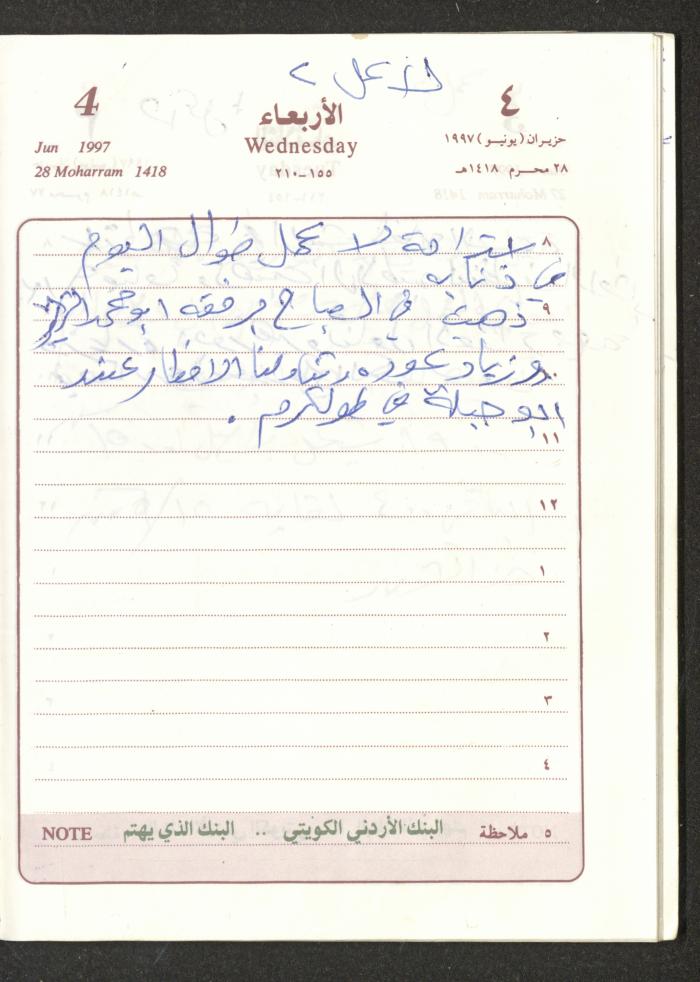 لا عمل >
4
الأربعاء
٤
Jun 1997
Wednesday
حزيران (يونيو) ١٩٩٧
28 Moharram 1418
١٥٥-٢١٠
٢٨ محرم ١٤١٨هـ
٨
استراحة لا عمل طوال اليوم
في ذنابه
٩
ذهبت في الصباح برفقه ابو محمد
١٠
وزياد عوده وتناولنا الافطار عند
ابو جبلة في طولكرم .
١١
١٢
١
٢
٣
٤
٥ ملاحظة البنك الأردني الكويتي .. البنك الذي يهتم NOTE